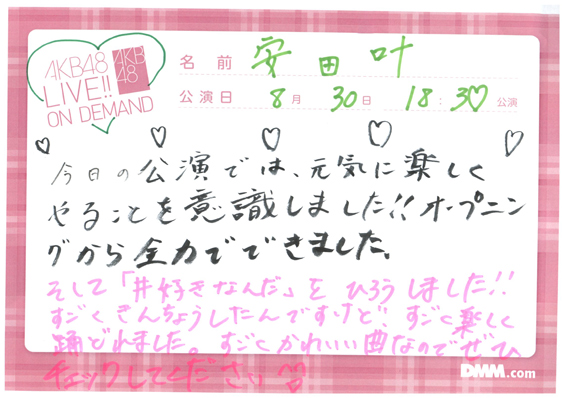 AKB48
LIVE!!
ON DEMAND
AKB
48
名前 安田叶
公演日 8月30日 18:30公演
今日の公演では、元気に楽しく
やることを意識しました!!オープニン
グから全力でできました。
そして「#好きなんだ」をひろうしました!!
すごくきんちょうしたんですけど、すごく楽しく
踊どれました。すごくかわいい曲なのでぜひ
チェックしてください
DMM.com